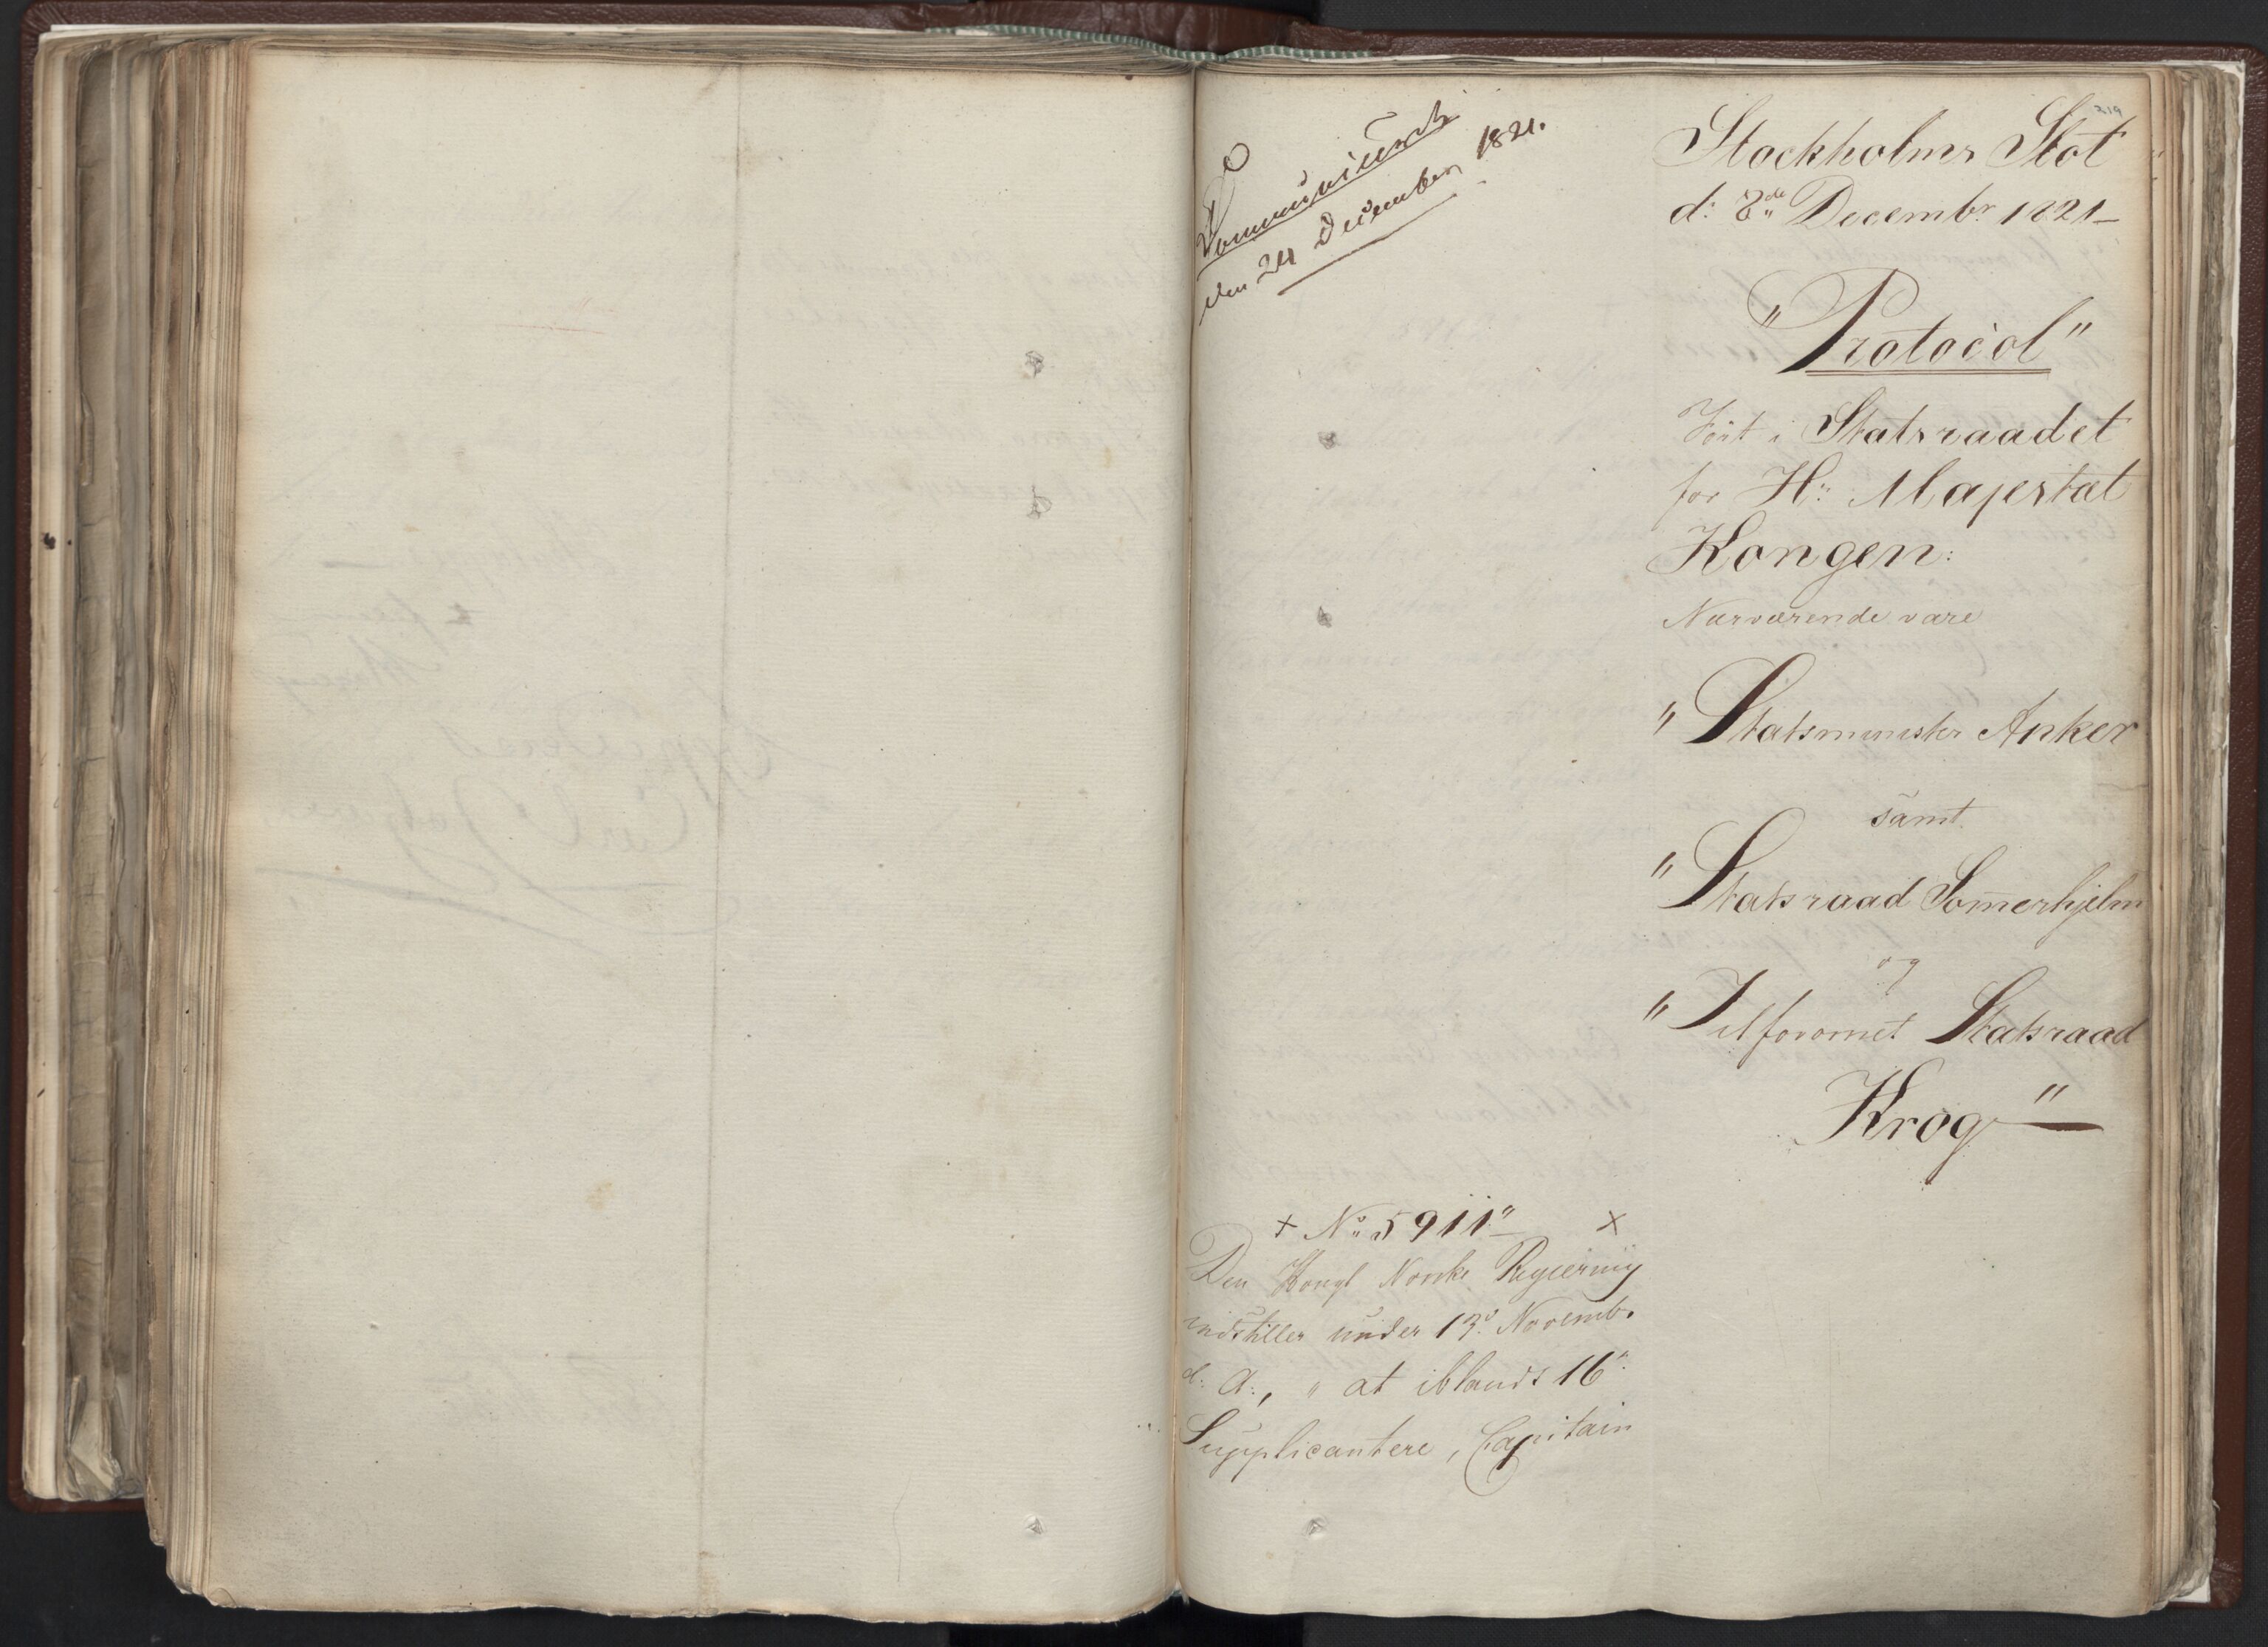 Kommuniceret
den 24 December 1821.
219
Stockholms Slot
d: 8de Decembr 1821
"Protocol"
Fört i Statsraadet
for Hs: Majestæt
Kongen:
Nærværende vare
" Statsminister Anker
samt
" Statsraad Som̄erhjelm
og
" Tilforornet Statsraad
Krog "
+ No 5911" +
Den Kongl Norske Regiering
indstiller under 13d. Novembr
d: A:, " at iblandt 16"
Supplicantere, Capitain